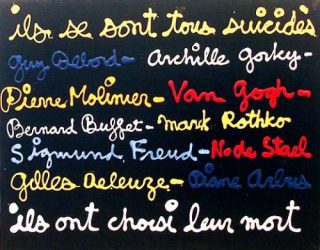 ils se sont tous suicidés
Guy Debord - Archille Gorky -
Pierre Molinier - Van Gogh -
Bernard Buffet - Mark Rothko
Sigmund Freud - No de Stael
Gilles Deleuze - Diane Arbus
ils ont choisi leur mort